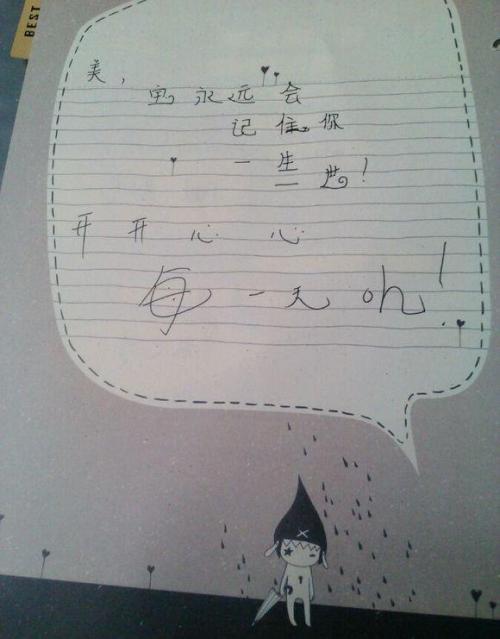 BEST
美，
宝永远会
记住你
一生
一世！
开开心心
每一天oh！